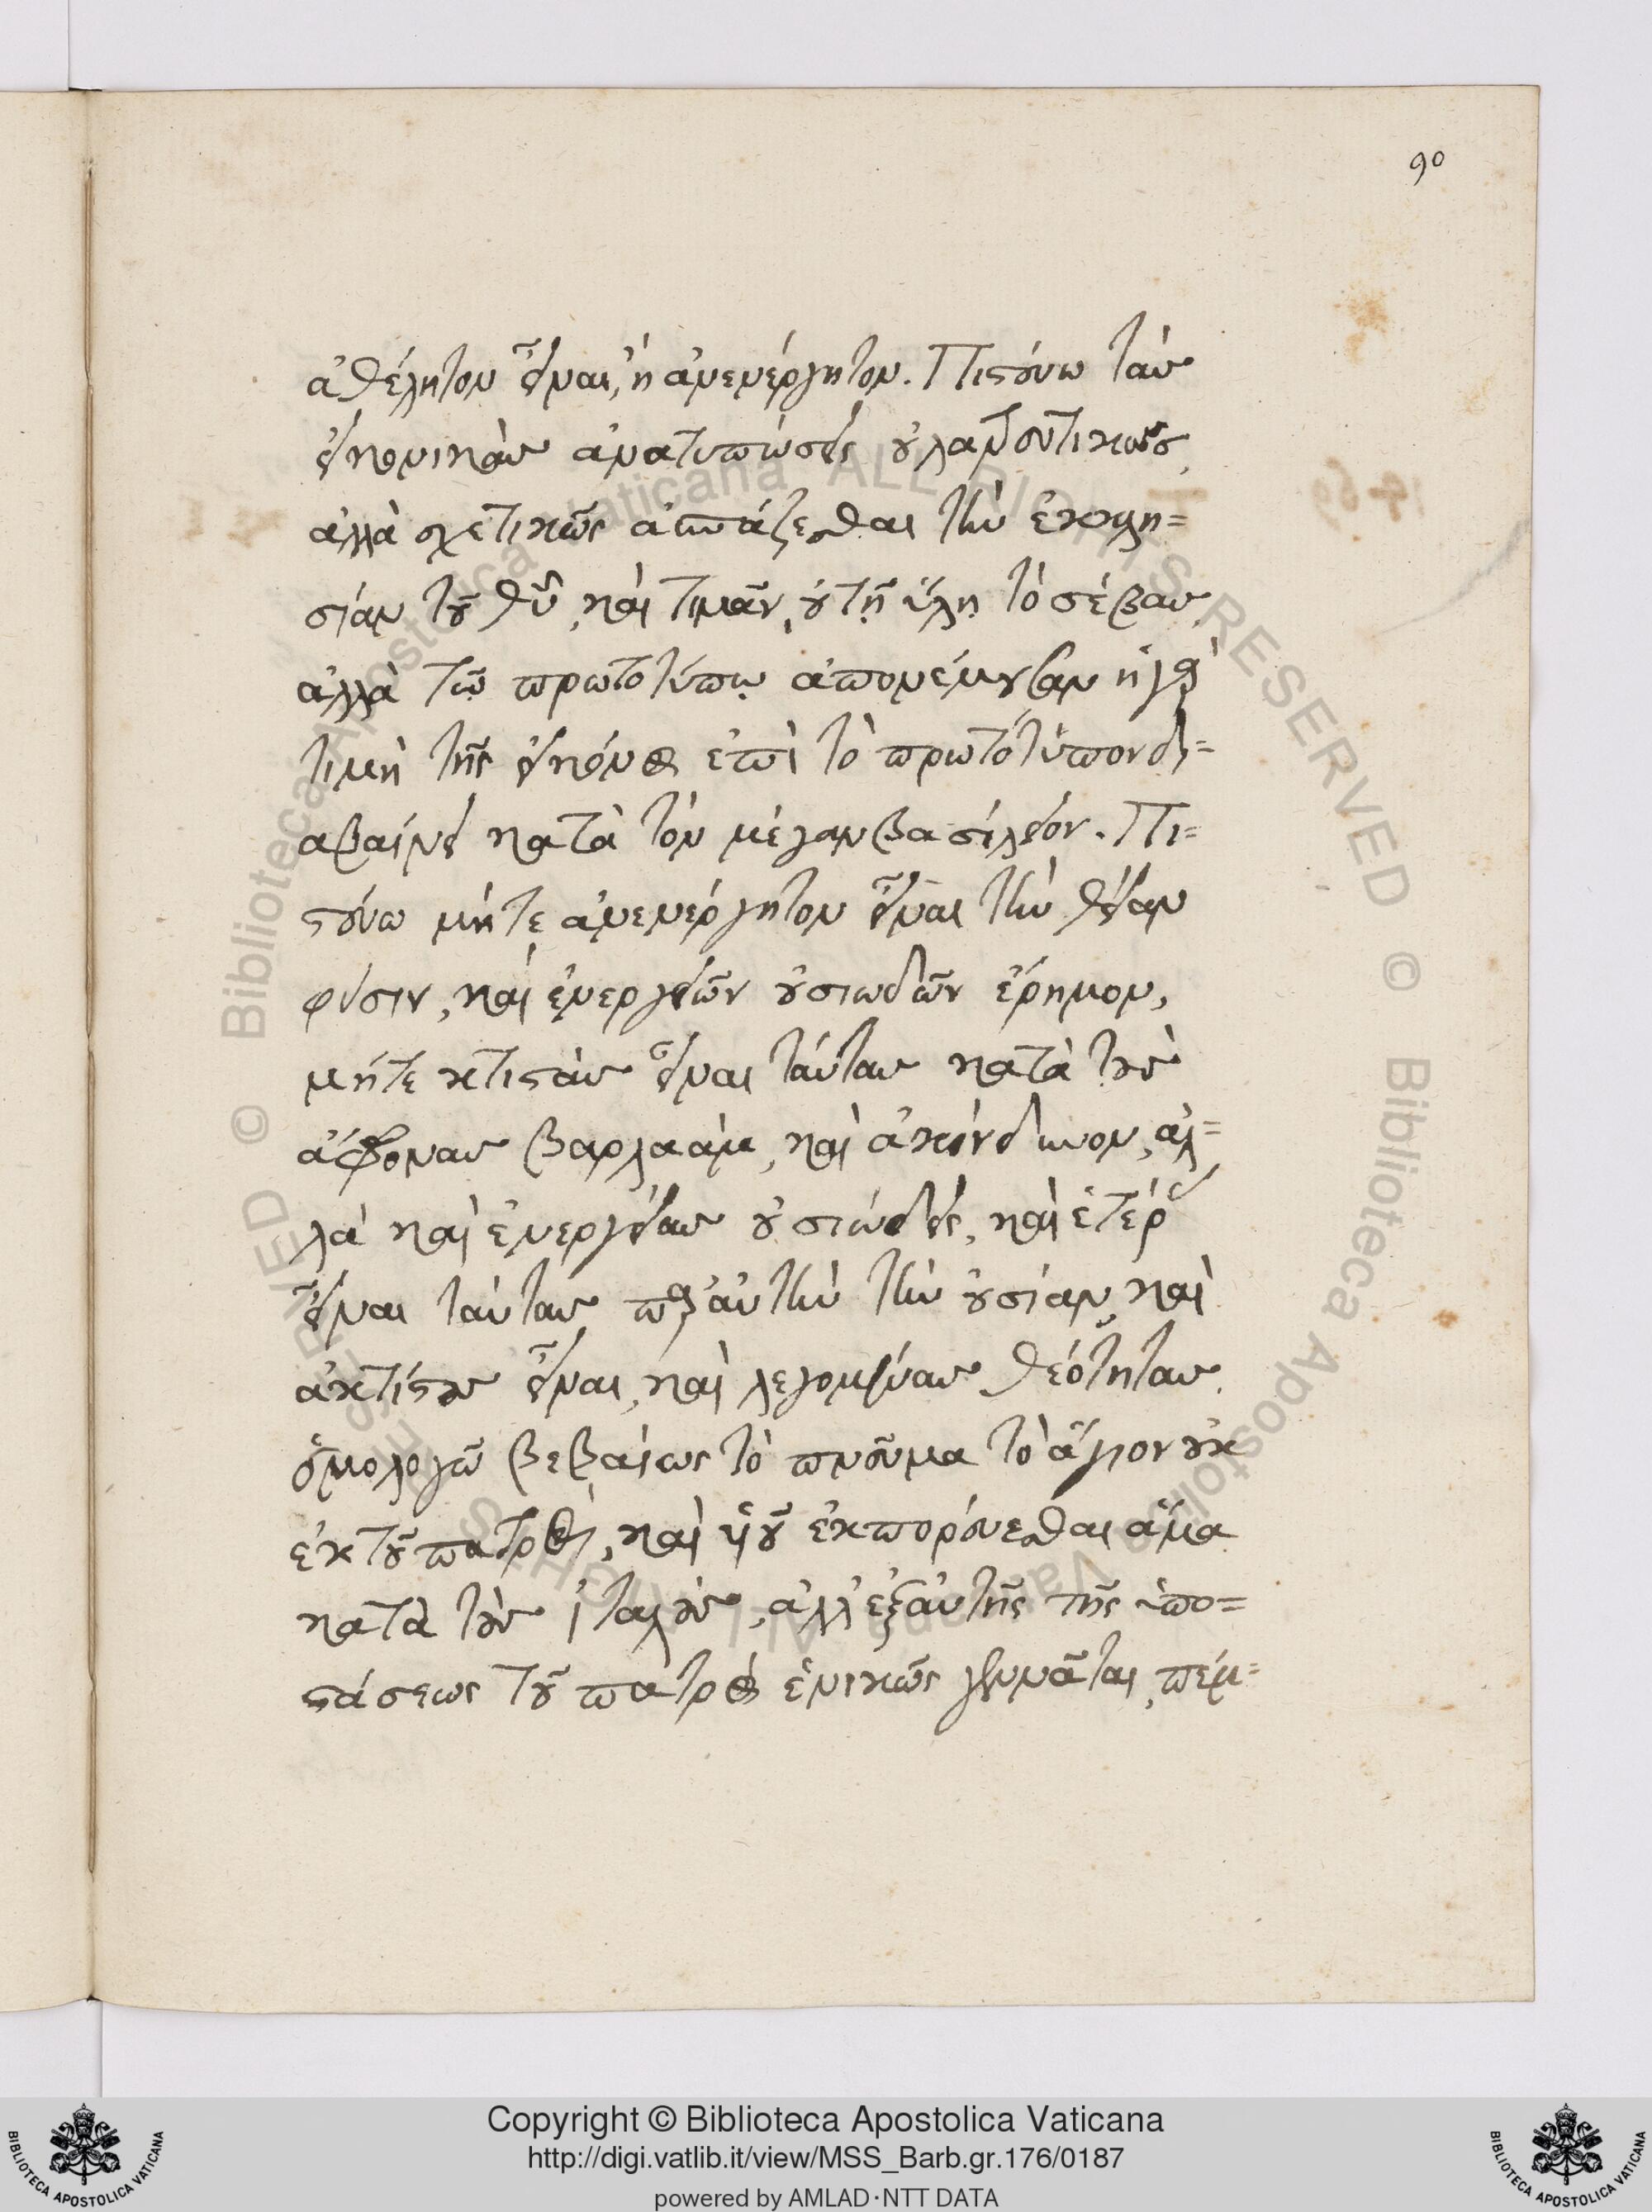 90
ἀθέλητον εἶναι, ἢ ἀνενέργητον. Πιστεύω τὰς
εἰκονικὰς ἀνατυπώσεις οὐ λατρευτικῶς,
ἀλλὰ σχετικῶς ἀσπάζεσθαι τὴν ἐκκλη=
σίαν τοῦ θῦ, καὶ τιμᾶν, οὐ τῇ ὕλῃ τὸ σέβας,
ἀλλὰ τῷ πρωτοτύπῳ ἀπονέμουσαν ἡ γὰρ
τιμὴ τῆς εἰκόνος ἐπὶ τὸ πρωτότυπον δι=
αβαίνει κατὰ τὸν μέγαν βασίλειον. Πι=
στεύω μήτε ἀνενέργητον εἶναι τὴν θείαν
φύσιν, καὶ ἐνεργειῶν οὐσιωδῶν ἔρημον,
μήτε κτιστὰς εἶναι ταύτας κατὰ τοὺς
ἄφρονας βαρλαὰμ, καὶ ἀκίνδυνον, ἀλ=
λὰ καὶ ἐνεργείας οὐσιώδεις, καὶ ἑτέρας
εἶναι ταύτας παρ' αὐτὴν τὴν οὐσίαν, καὶ
ἀκτίστους εἶναι, καὶ λεγομένας θεότητας.
ὁμολογῶ βεβαίως τὸ πνεῦμα τὸ ἅγιον οὐκ
ἐκ τοῦ πατρὸς, καὶ υἱοῦ ἐκπορεύεσθαι ἅμα
κατὰ τοὺς ἰταλοὺς, ἀλλ' ἐξ αὐτῆς τῆς ὑπο=
στάσεως τοῦ πατρὸς ἑνικῶς γεννᾶται, πέμ=
Copyright © Biblioteca Apostolica Vaticana
http://digi.vatlib.it/view/MSS_Barb.gr.176/0187
powered by AMLAD·NTT DATA